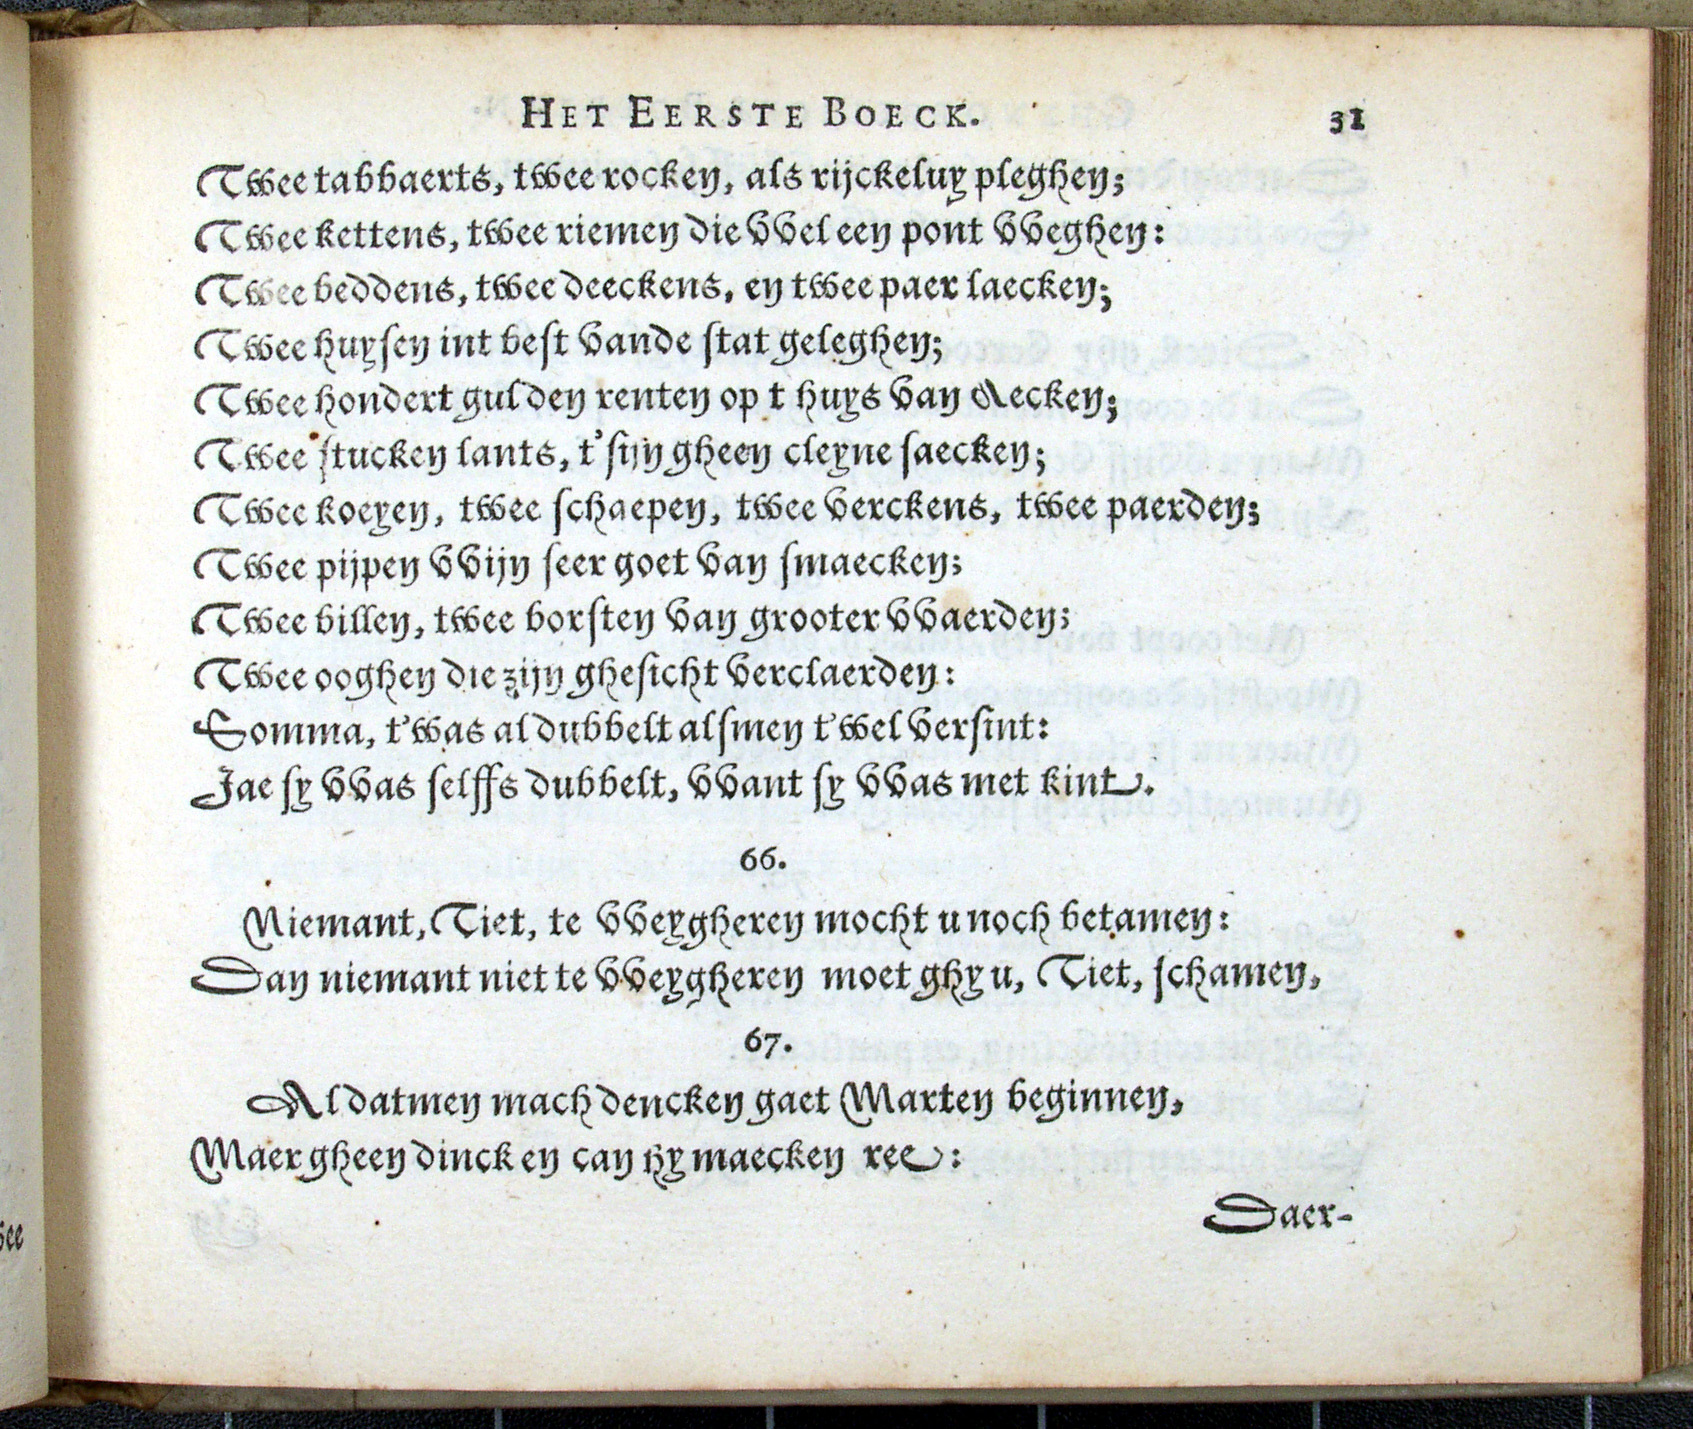 HET EERSTE BOECK. 31
Twee tabbaerts, twee rocken, als rijckeluy pleghen;
Twee kettens, twee riemen die vvel een pont vveghen:
Twee beddens, twee deeckens, en twee paer laecken;
Twee huysen int best vande stat geleghen;
Twee hondert gulden renten op t huys van Aecken;
Twee stucken lants, t'sijn gheen cleyne saecken;
Twee koeyen, twee schaepen, twee verckens, twee paerden;
Twee pijpen vvijn seer goet van smaecken;
Twee billen, twee borsten van grooter vvaerden;
Twee ooghen die zijn ghesicht verclaerden:
Somma, t'was al dubbelt alsmen t'wel versint:
Jae sy vvas selffs dubbelt, vvant sy vvas met kint.
66.
Niemant, Tiet, te vveygheren mocht u noch betamen:
Dan niemant niet te vveygheren moet ghy u, Tiet, schamen,
67.
Al datmen mach dencken gaet Marten beginnen,
Maer gheen dincken can hy maecken ree:
Daer-